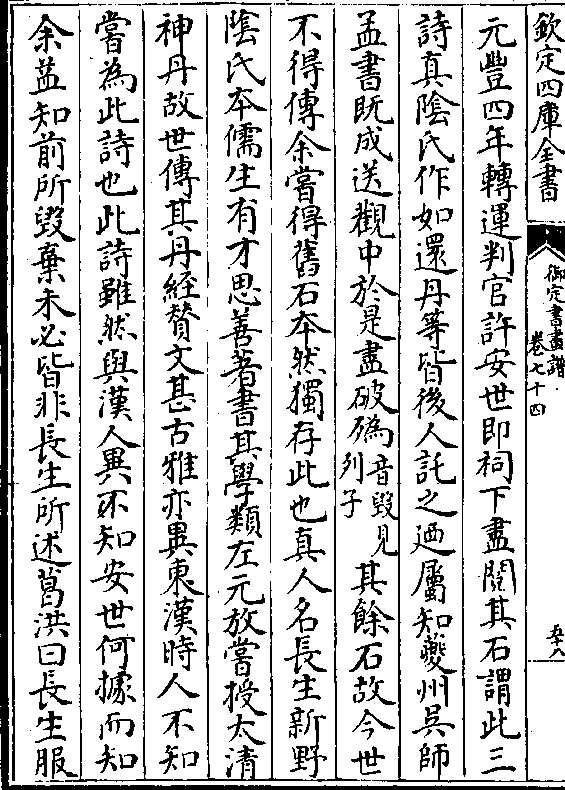 欽定四庫全書
御定書畫譜
卷七十四
五六
元豐四年轉運判官許安世即祠下盡閱其石謂此三
詩真陰氏作如還丹等皆後人託之廼屬知夔州吳師
孟書既成送觀中於是盡破䃣音毀見列子其餘石故今世
不得傳余嘗得舊石本然獨存此也真人名長生新野
陰氏本儒生有才思善著書其學類左元放嘗授太清
神丹故世傳其丹經贊文甚古雅亦異東漢時人不知
嘗為此詩也此詩雖然與漢人異不知安世何據而知
余葢知前所毀棄未必皆非長生所述葛洪曰長生服